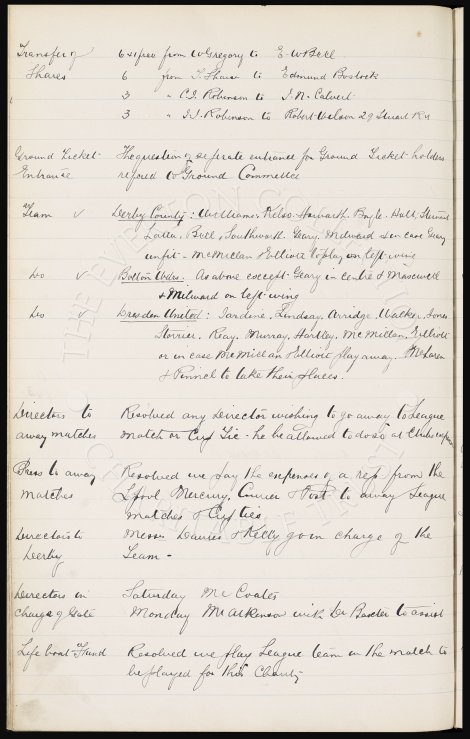 Transfer of 6 shares from W Gregory to E. W Bell
Shares 6 from to Edmund Bostock
3 " C.J. Robinson to J. N. Calvert
3 " J.J. Robinson to Robert Wilson 29 Stuart Rd
Ground Ticket The question of seperate entrance for Ground Ticket-holders
Entrance referred to Ground Committee
Team v Derby County: Williams, Kelso, Howarth, Boyle, Holt, Stewart
Latta, Bell, Southworth, Geary, Milward & in case Geary
unfit - McMillan & Elliott to play on left wing
Do v Bolton Wdrs. As above except Geary in centre & Maxwell
& Milward on left wing
Do v Dresden United: Jardine, Lindsay, Arridge, Walker, Jones
Storrier, Reay, Murray, Hartley, McMillan, Elliott
or in case McMillan & Elliott play away. McLaren
& Pinnel to take their places.
Directors to Resolved any Director wishing to go away to League
away matches match or Cup Tie - he be allowed to do so at Clubs expense
Press to away Resolved we pay the expenses of a rep. from the
matches Lpool Mercury, Courier & Post to away League
matches & Cup ties.
Directors to Messrs Davies & Kelly go in charge of the
Derby Team -
Directors in Saturday Mr Coates
charge of Gate Monday Mr Atkinson with Dr Baxter to assist
Life boat Fund Resolved we play League team in the match to
be played for this Charity